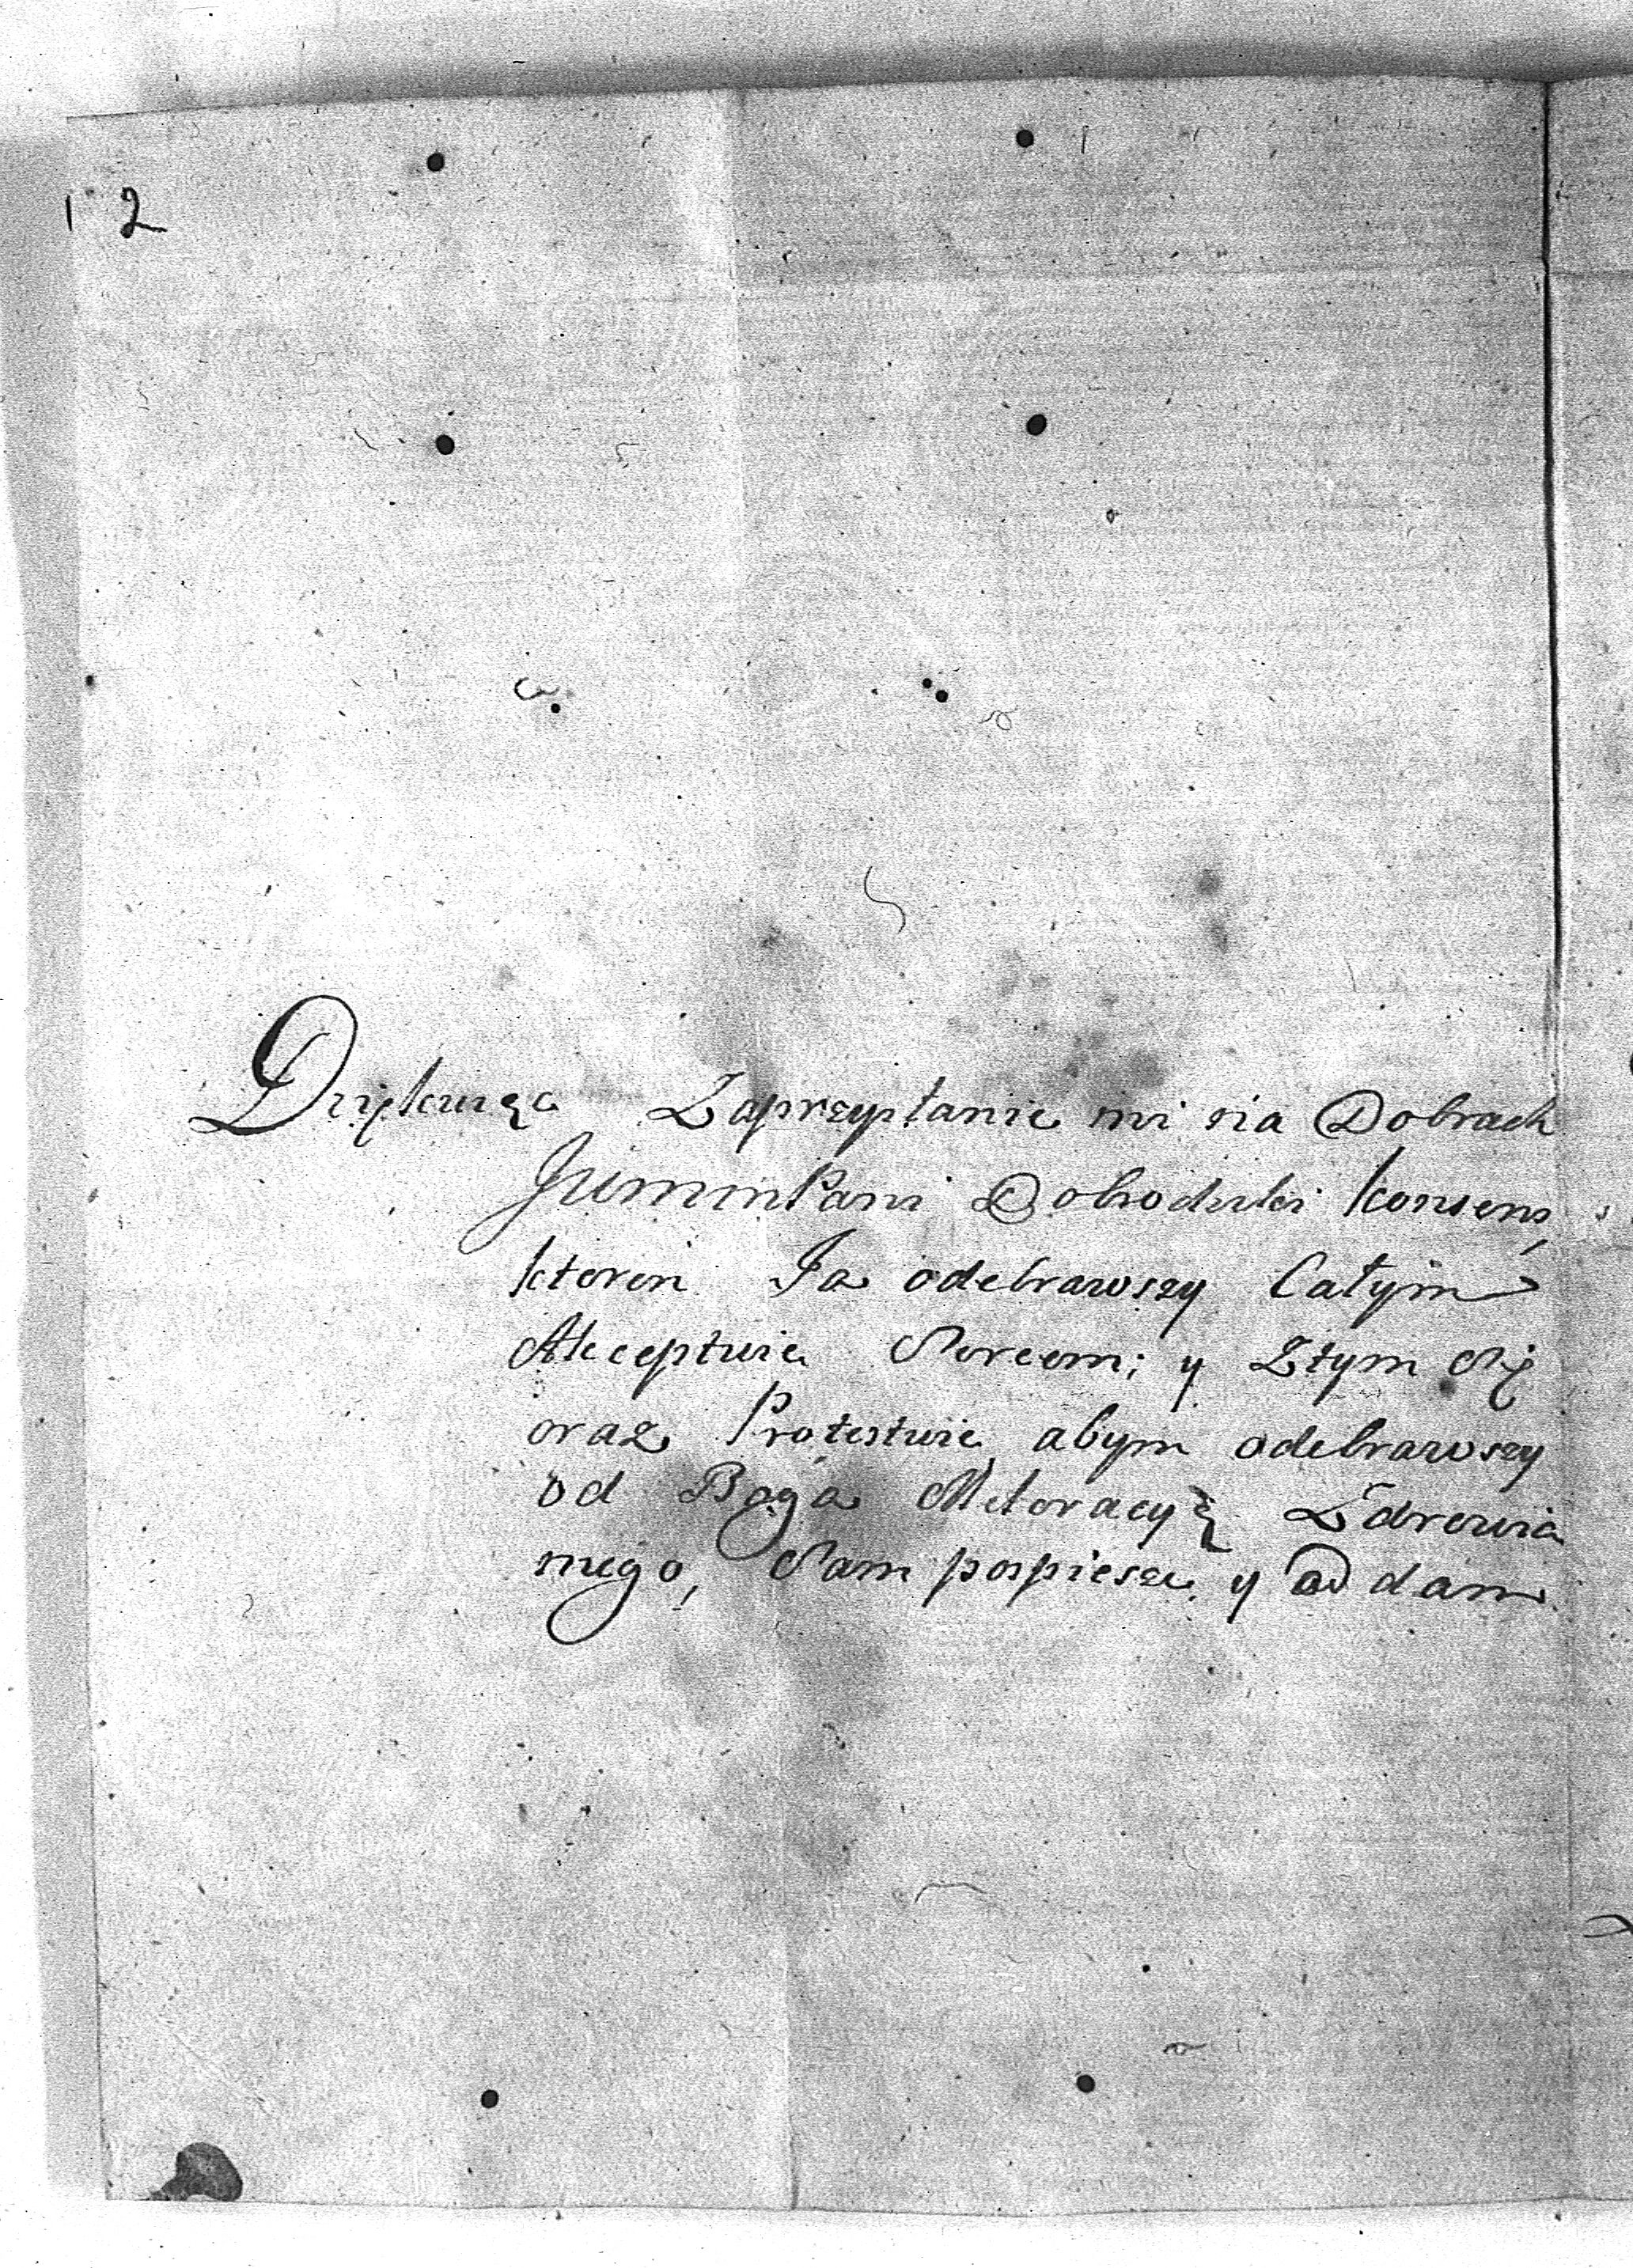 12
Dziękuięc Zaprzysłanie mi na Dobrach
JWimmPani Dobrodziki konsens,
ktoren Ja odebrawszy Całym
Akceptuie Sercem; y Ztym Się
oraz Protestuię abym odebrawszy
od Boga Melioracyę Zdrowia
mego, Sam pospiesze y addam